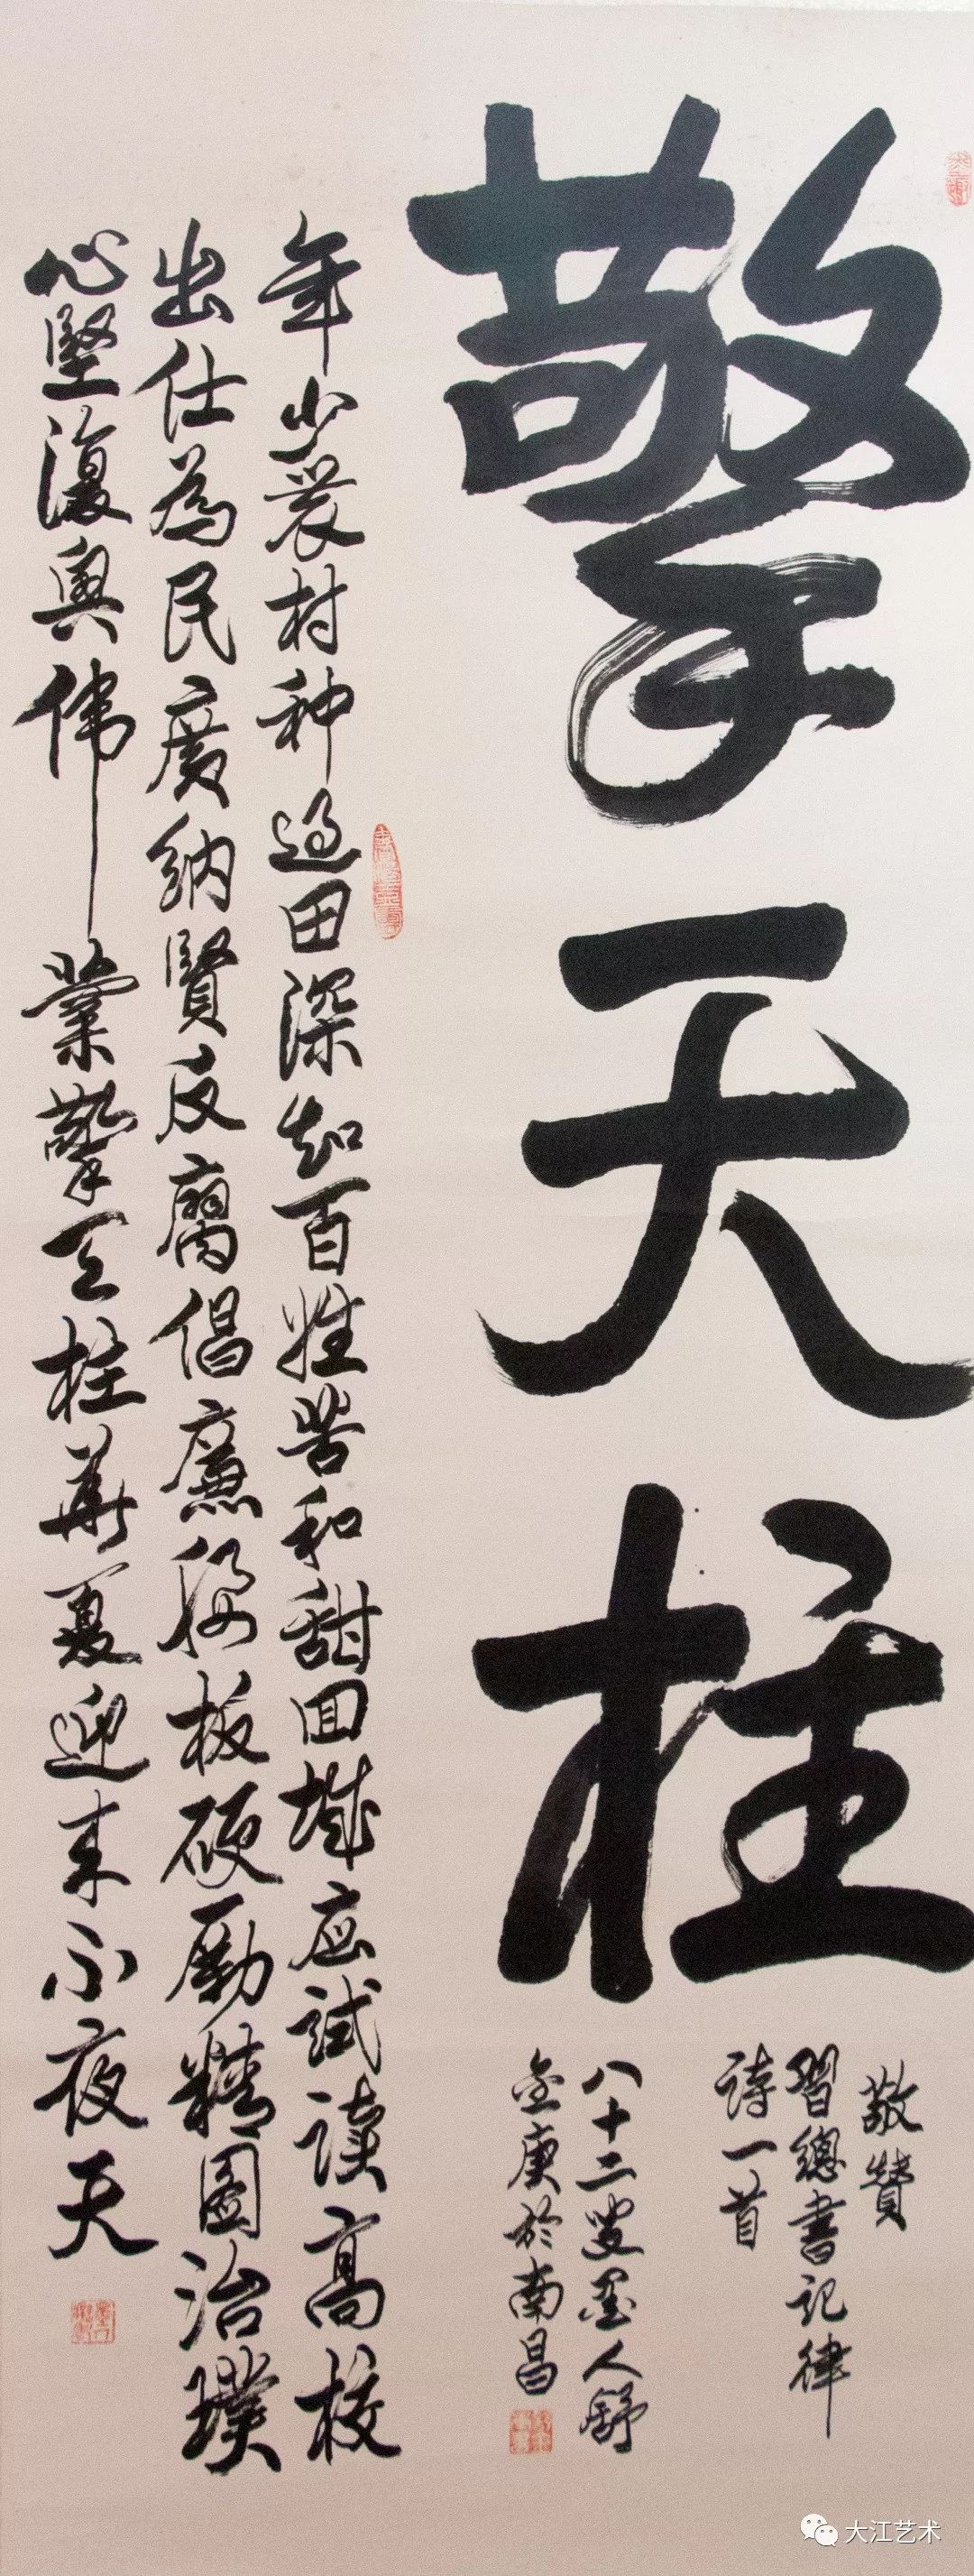 擎天柱
敬贊
習總書記律
詩一首
八十二叟墨人舒
金庚於南昌
年少農村种過田深知百姓苦和甜回城应試读高校
出仕為民廣納賢反腐倡廉腰板硬勵精圖治璞
心堅復興伟業擎天柱華夏迎来不夜天
大江艺术